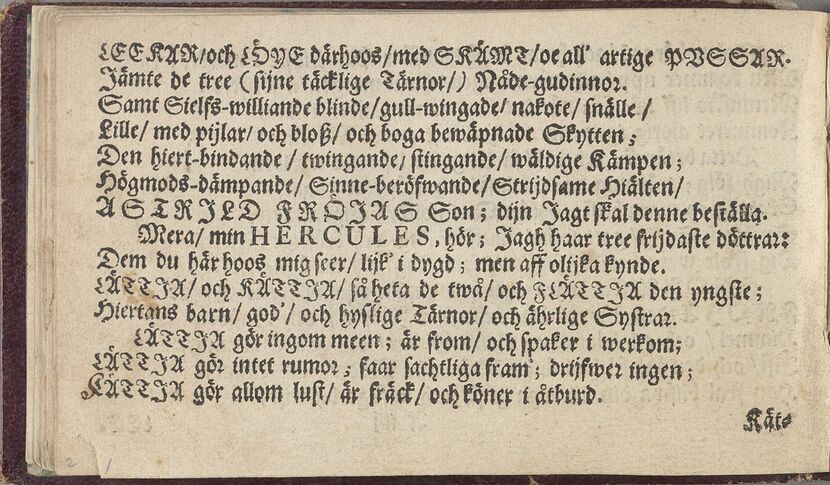 LEEKAR/och LÖYE därhoos/med SKÄMT/oe all' artige PVSSAR.
Jämte de tree (sijne täcklige Tärnor/) Nåde-gudinnor.
Samt Sielfs-williande blinde/gull-wingade/ nakote/ snälle/
Lille/ med pijlar/ och bloß/ och boga bewäpnade Skytten;
Den hiert-bindande/ twingande/ stingande/ wäldige Kämpen;
Högmods-dämpande/ Sinne-beröfwande/Strijdsame Hiälten/
ASTRILD FRÖIJAS Son; dijn Jagt skal denne beställa.
Mera/ min HERCULES, hör; Jagh haar tree frijdaste döttrar:
Dem du här hoos mig seer/ lijk' i dygd; men aff olijka kynde.
LÄTTJA/ och KÄTTJA/ så heta de twå/ och FLÄTTJA den yngste;
Hiertans barn/ god'/ och hyslige Tärnor/ och ährlige Systrar.
LÄTTJA gör ingom meen; är from/ och spaker i werkom;
LÄTTJA gör intet rumor; faar sachtliga fram; drijfwer ingen;
KÄTTJA gör allom lust/ är fräck/ och köner i åthurd.
Kät-